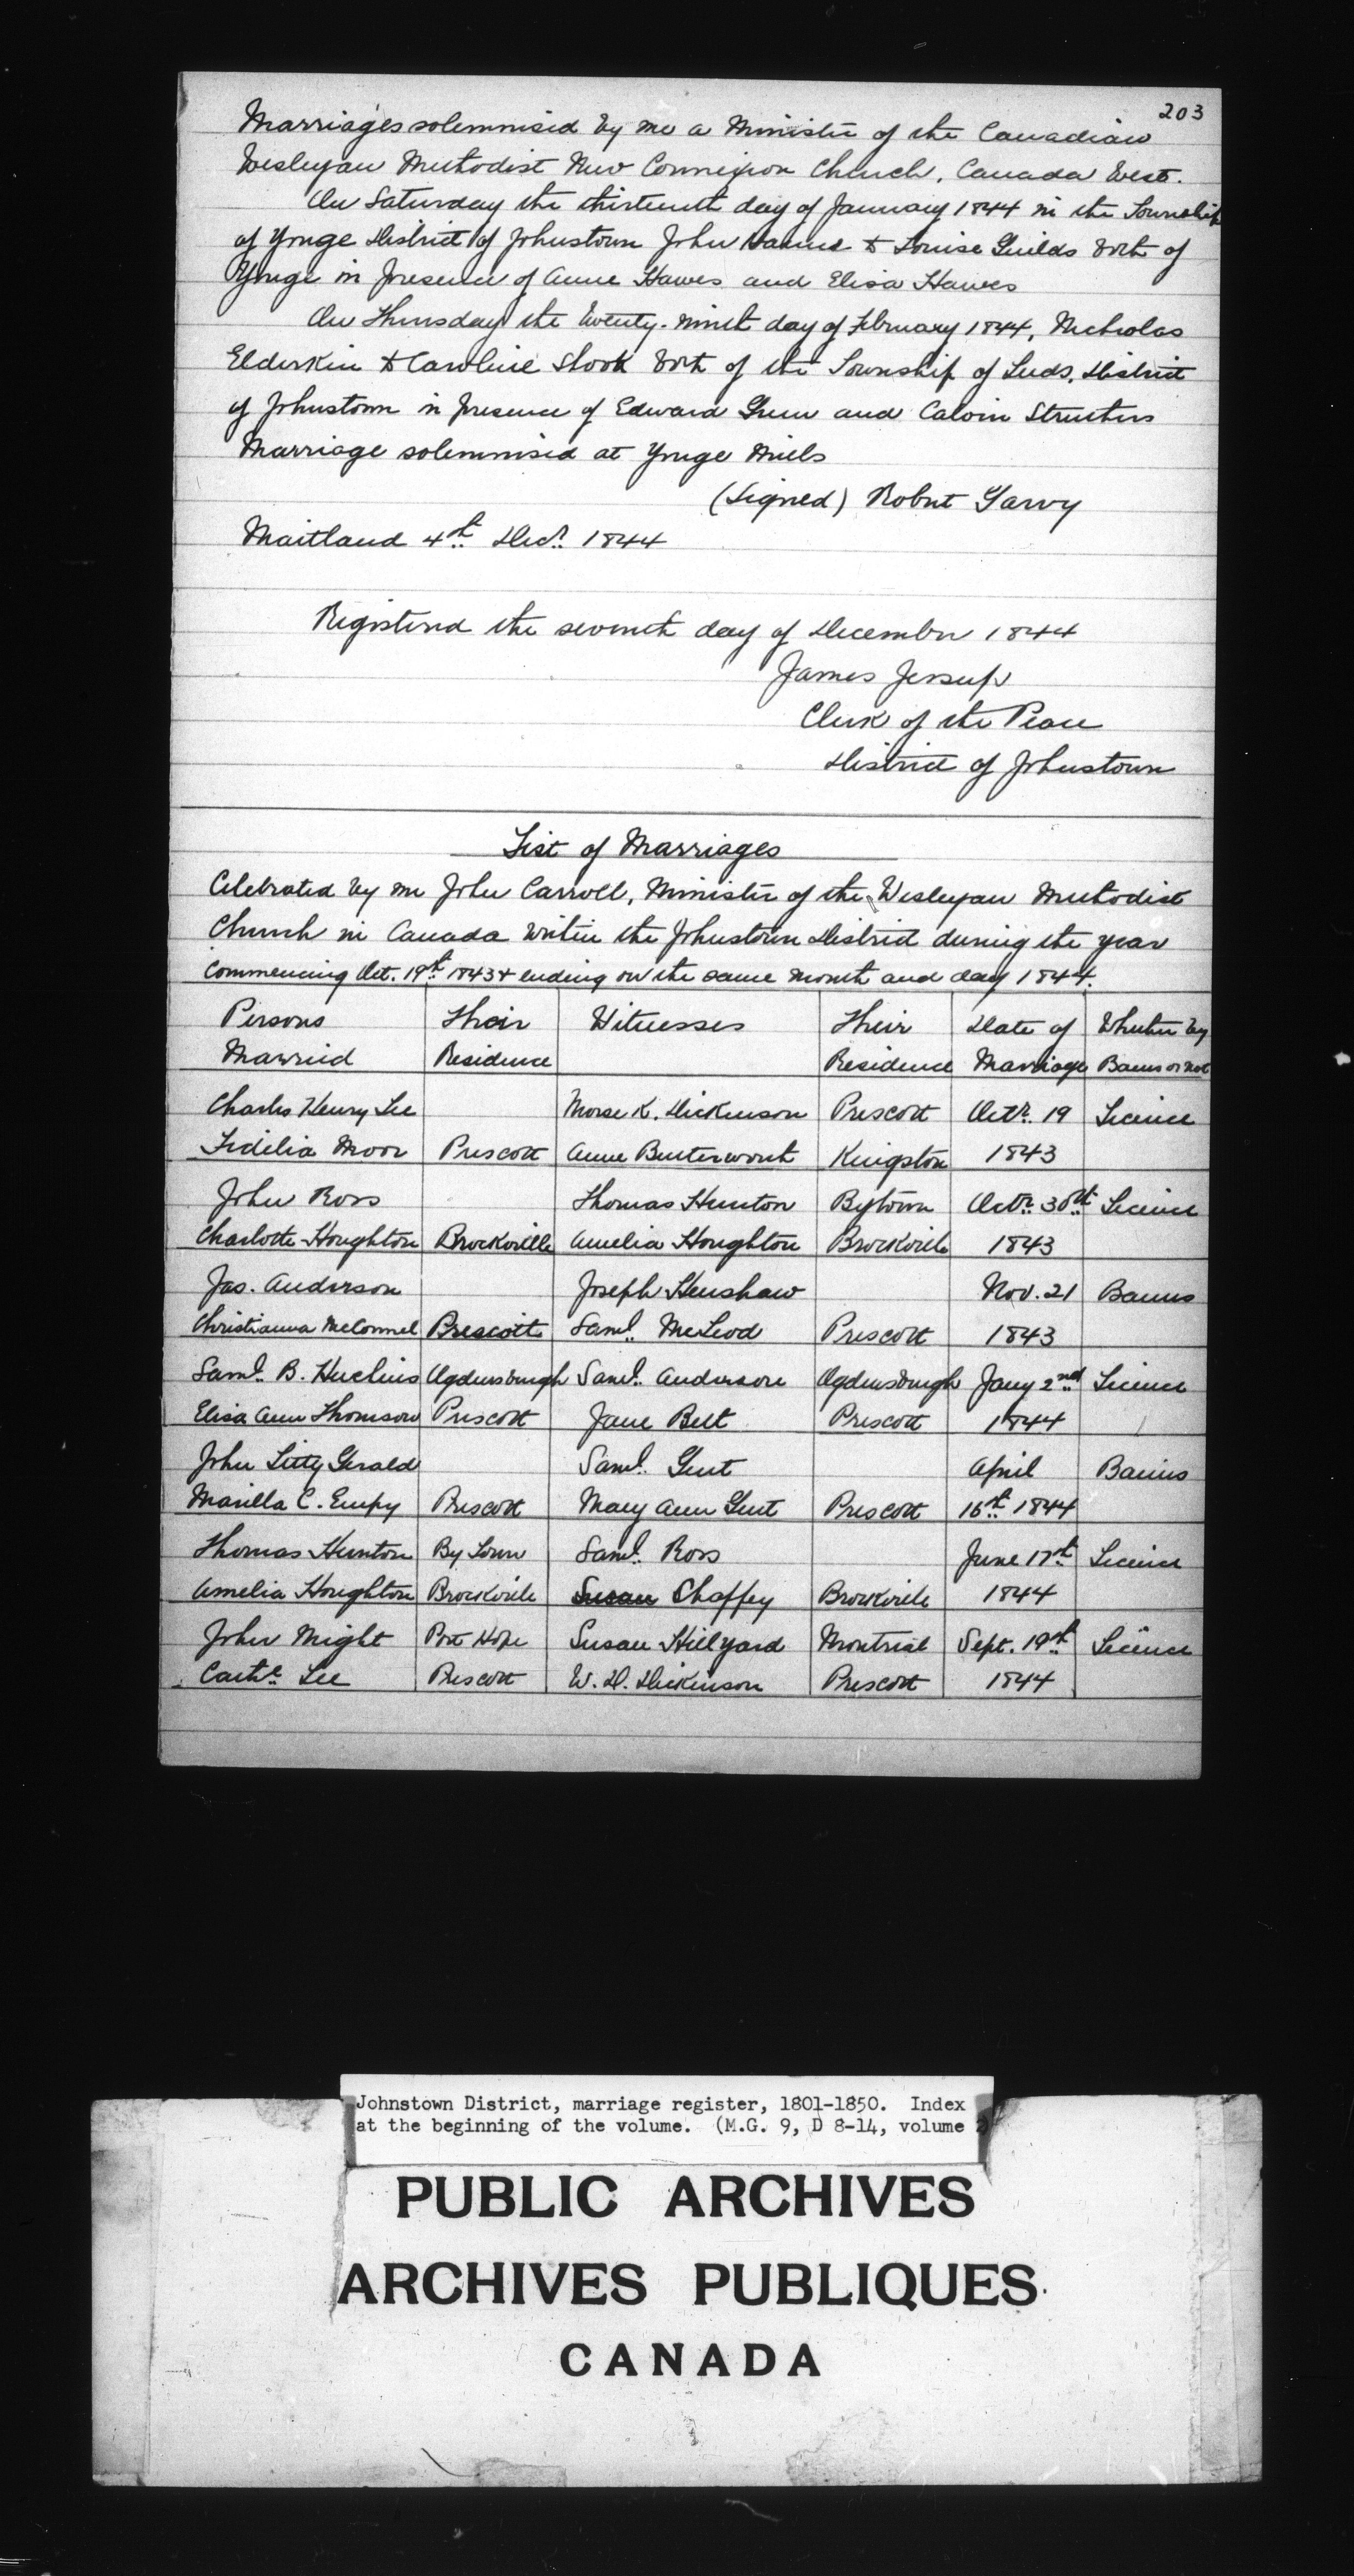 203
Marriages solemnised by me a Minister of the Canadian
Wesleyan Methodist New Connexion Church, Canada West.
On Saturday the thirteenth day of January 1844 in the Township
of Yonge District of Johnstown John & Louise Guilds both of
Yonge in presence of Anne Hawes and Elisa Hawes
On Thursday the twenty-ninth day of February 1844, Nicholas
Elderkin & Caroline Shook both of the Township of Leeds, District
of Johnstown in presence of Edward Green and Calvin Struthers
Marriage solemnised at Yonge Mills
(Signed) Robert Garvy
Maitland 4th Decr. 1844
Registered the seventh day of December 1844
James Jessup
Clerk of the Peace
District of Johnstown
List of Marriages
Celebrated by me John Carroll, Minister of the Wesleyan Methodist
Church in Canada within the Johnstown District during the year
Commencing Oct. 19th 1843 & ending on the same month and day 1844.
Persons Their Witnesses Their Date of Whether by
Married Residence Residence Marriage Banns or not
Charles Henry Lee Morse K. Dickenson Prescott Octr. 19 Licence
Fidelia Moor Prescott Anne Butterworth Kingston 1843
John Ross Thomas Hunton Bytown Octr. 30th Licence
Charlotte Houghton Brockville Amelia Houghton Brockville 1843
Jas. Anderson Joseph Henshaw Nov. 21 Banns
Christianna McConnel Prescott Saml. McLeod Prescott 1843
Saml. B. Huchins Ogdensburgh Saml. Anderson Ogdensburgh Jany 2nd Licence
Elisa Ann Thomson Prescott Jane Bell Prescott 1844
John Fitty Gerald Saml. Gent April Banns
Marilla C. Empy Prescott Mary Ann Gent Prescott 16th 1844
Thomas Hunton By Town Saml. Ross June 17th Licence
Amelia Houghton Brockville Susan Chaffey Brockville 1844
John Might Port Hope Susan Hillyard Montreal Sept. 19th Licence
Cathe. Lee Prescott W. H. Dickinson Prescott 1844
Johnstown District, marriage register, 1801-1850. Index
at the beginning of the volume. (M.G. 9, D 8-14, volume 2)
PUBLIC ARCHIVES
ARCHIVES PUBLIQUES
CANADA